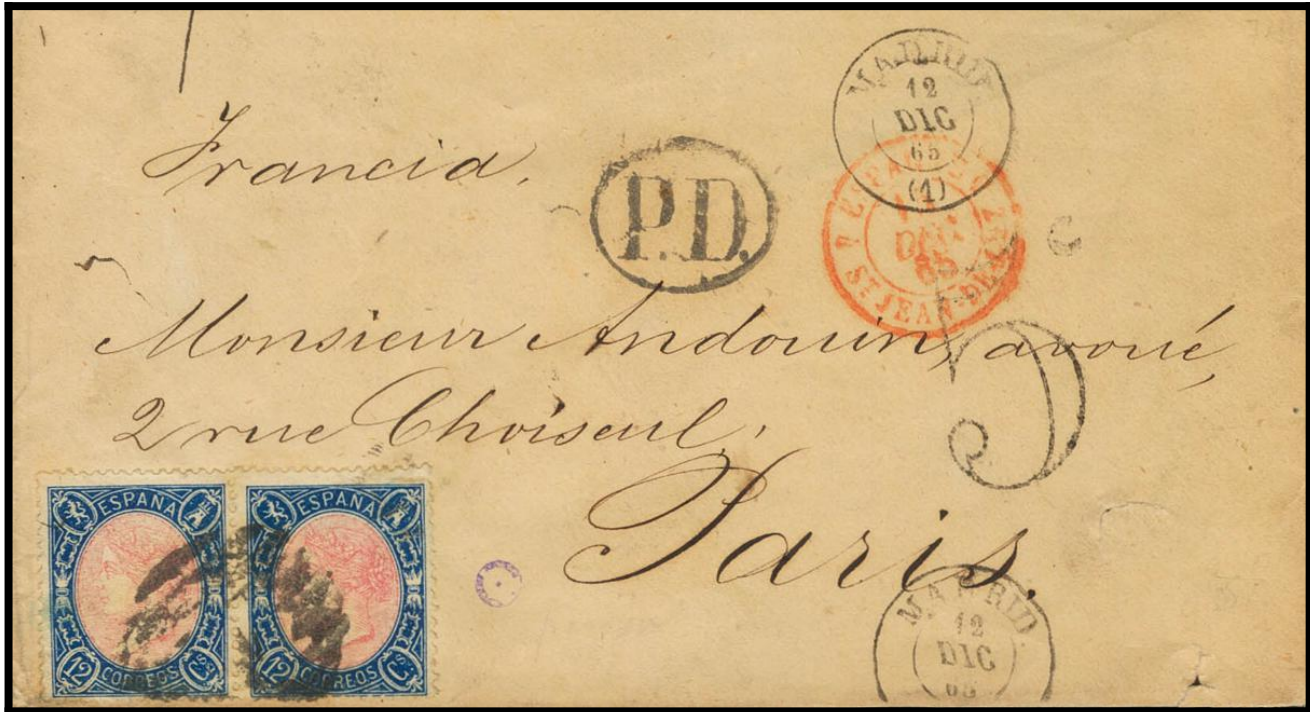 MADRID
12
DIC
65
(1)
Francia.
P.D.
DEC
65
ST JEAN-DE-LUZ
5
Monsieur Andouin, avoué,
2 rue Choiseul.
Paris.
ESPAÑA
12 CORREOS Cs.
ESPAÑA
12 CORREOS Cs.
MADRID
12
DIC
65